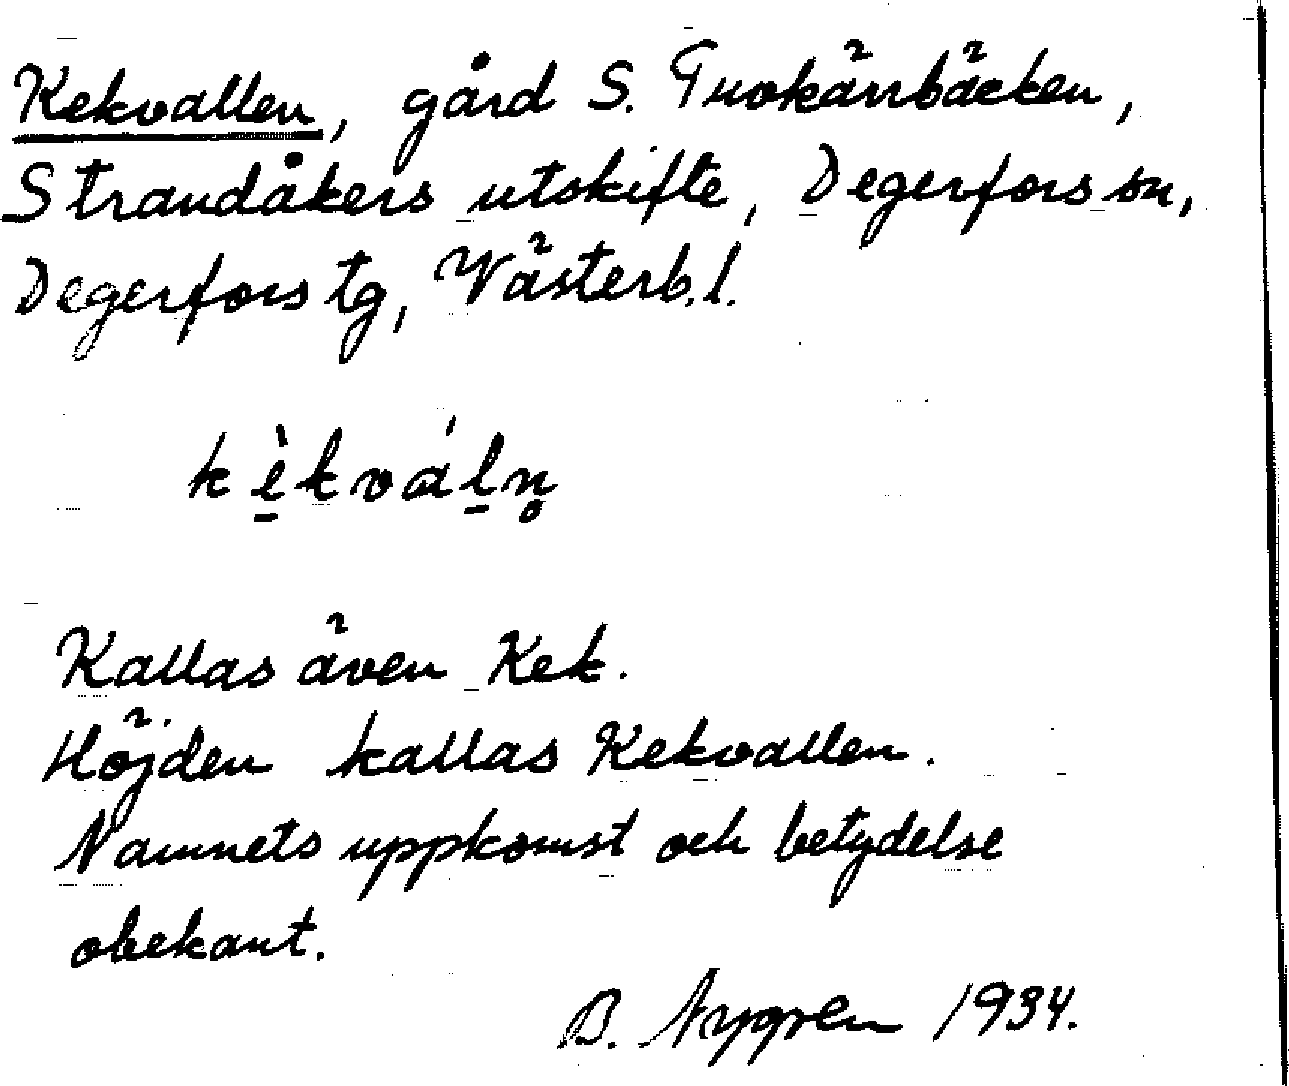 Kekvallen, gård S. Tuvkärrbäcken,
Strandåkers utskifte, Degerfors sn,
Degerfors tg, Västerb.l.
kè̱kváḻn̥
Kallas även Kek.
Höjden kallas Kekvallen.
Namnets uppkomst och betydelse
obekant.
B. Nygren 1934.